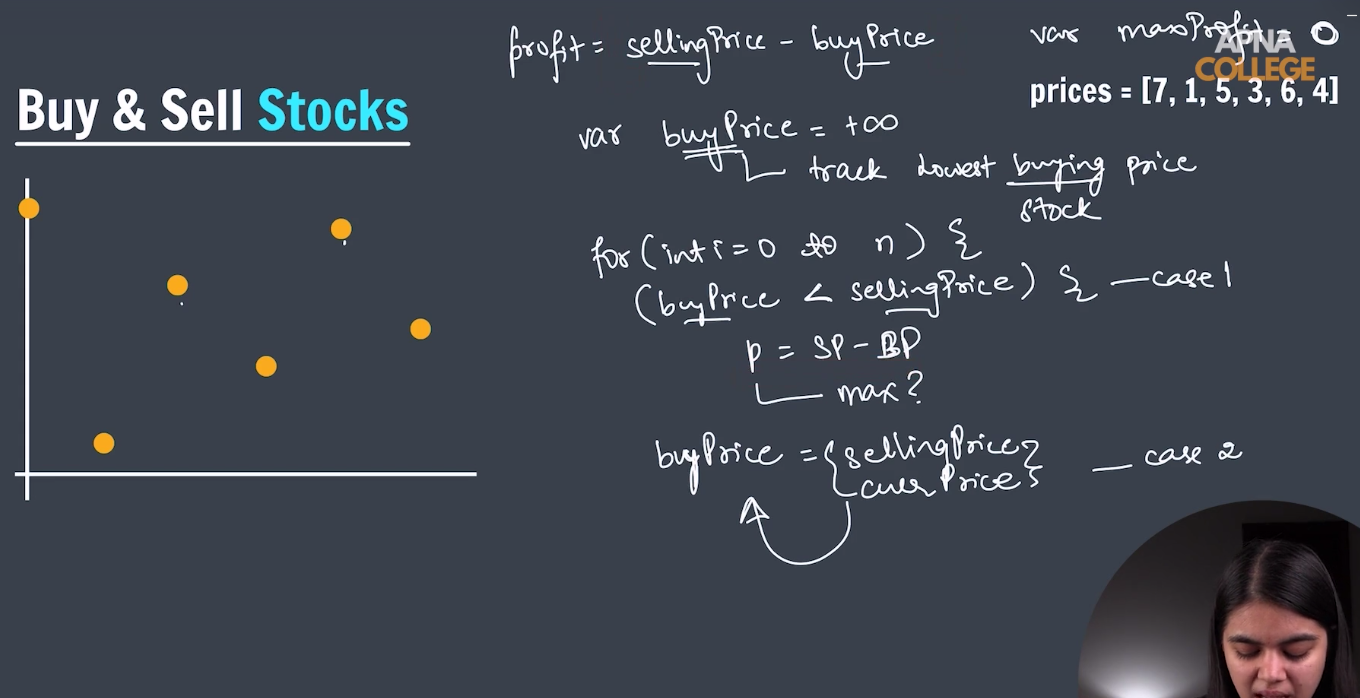 profit = sellingPrice - buyPrice
var maxProfit = 0
APNA
COLLEGE
prices = [7, 1, 5, 3, 6, 4]
Buy & Sell Stocks
var buyPrice = +∞
track lowest buying price
stock
for (int i = 0 to n) {
(buyPrice < sellingPrice) { — case 1
p = SP - BP
max?
buyPrice = {sellingPrice} — case 2
{currPrice}